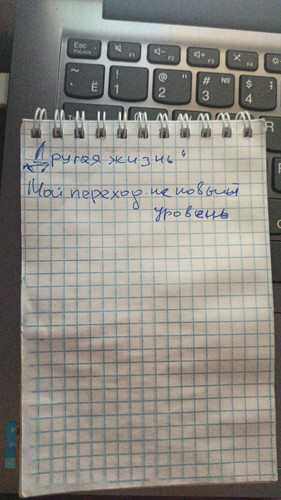 Esc FnLock F1 F2 F3 F4
~ ` Ё ! 1 @ " 2 # № 3 $ ; 4
R
"Другая жизнь"
Мой переход на новый
уровень